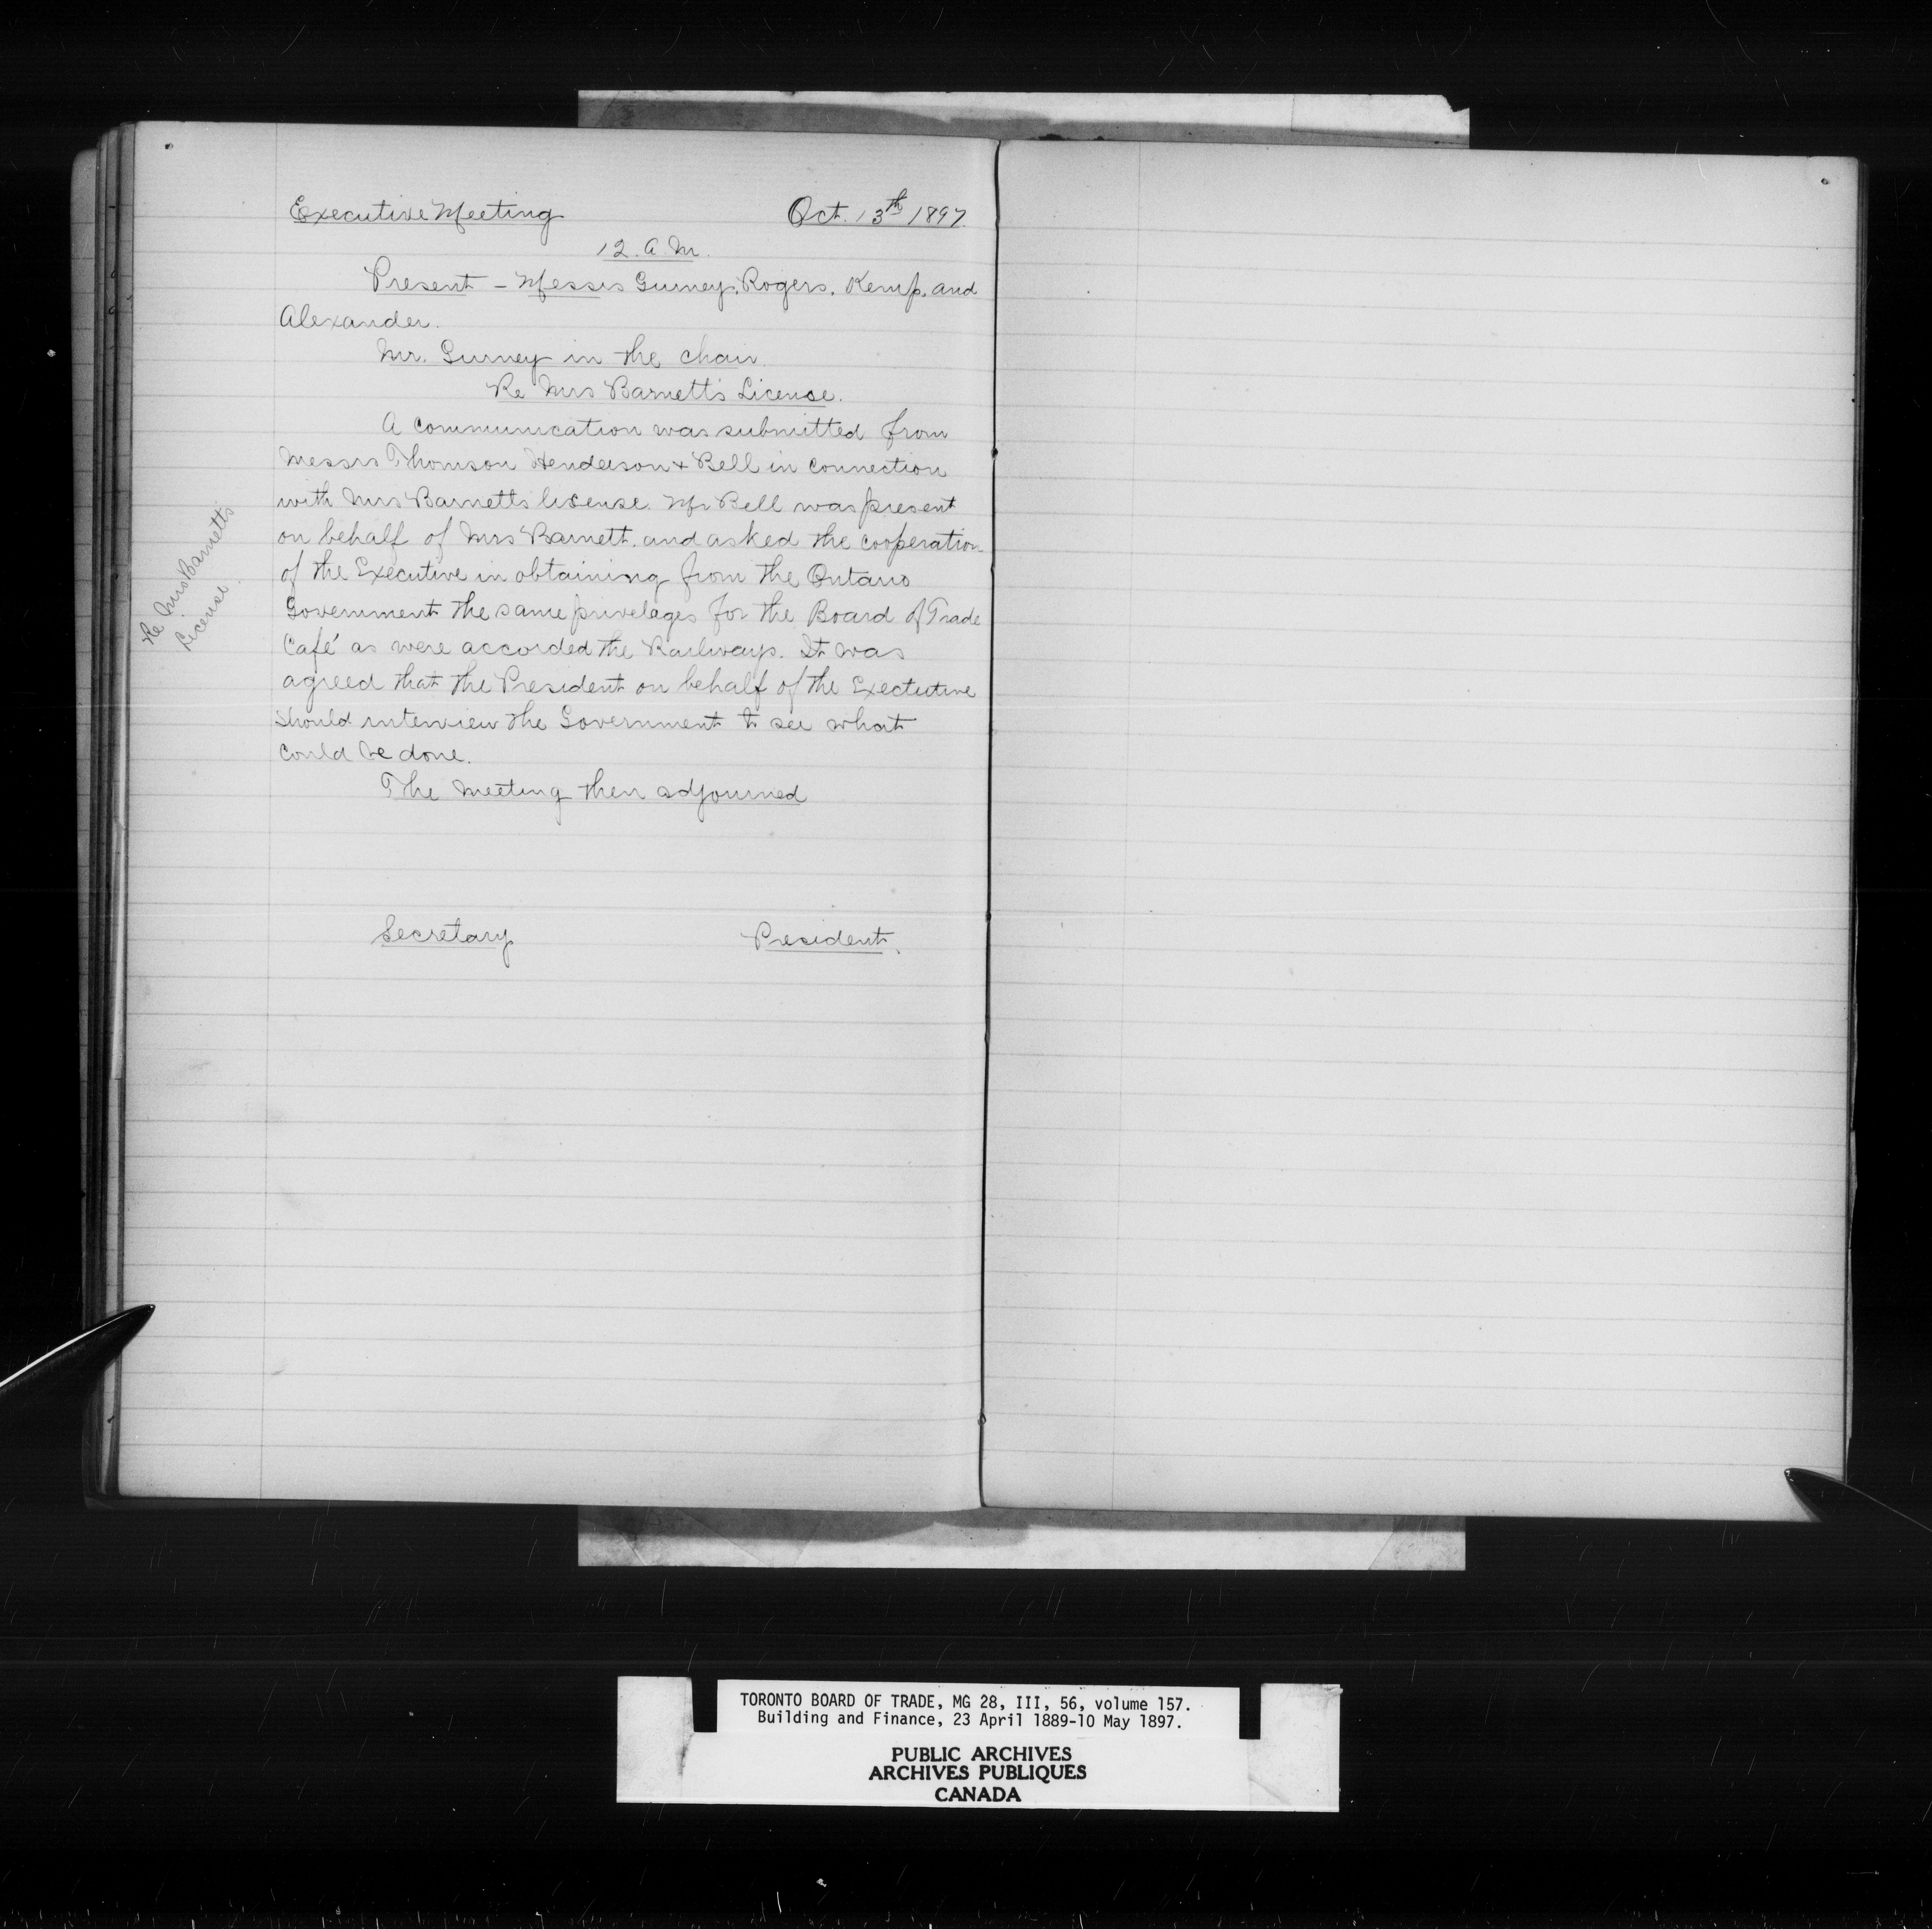 Executive Meeting Oct. 13th 1897
12. A.M.
Present - Messrs Gurney, Rogers, Kemp, and
Alexander.
Mr. Gurney in the chair.
Re Mrs Barnett's License.
A communication was submitted from
Messrs Thomson Henderson + Bell in connection
with Mrs Barnetts lisense. Mr Bell was present
on behalf of Mrs Barnett. and asked the cooperation
of the Executive in obtaining from the Ontario
Government the same privelages for the Board of Trade
Café as were accorded the Railways. It was
agreed that the President on behalf of the Exectutive
should interview the Government to see what
could be done.
The meeting then adjourned
Secretary President.
Re Mrs Barnetts
License.
TORONTO BOARD OF TRADE, MG 28, III, 56, volume 157.
Building and Finance, 23 April 1889-10 May 1897.
PUBLIC ARCHIVES
ARCHIVES PUBLIQUES
CANADA